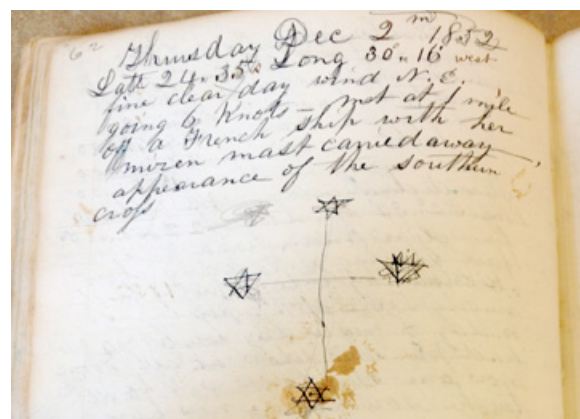 62 Thursday Dec 2nd 1852
Latt 24 " 35 Long 30 " 16 west
fine clear day wind N. E.
going 6 Knots - met at 1 mile
off a French ship with her
mizen mast carried away
appearance of the southern
cross